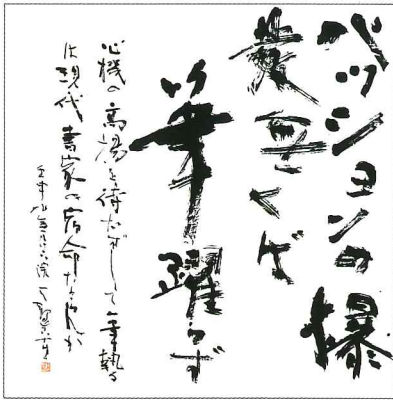 パッションの爆
発无くば
筆躍らず
心機の高揚を待たずして筆執る
は現代書家の宿命たらんか